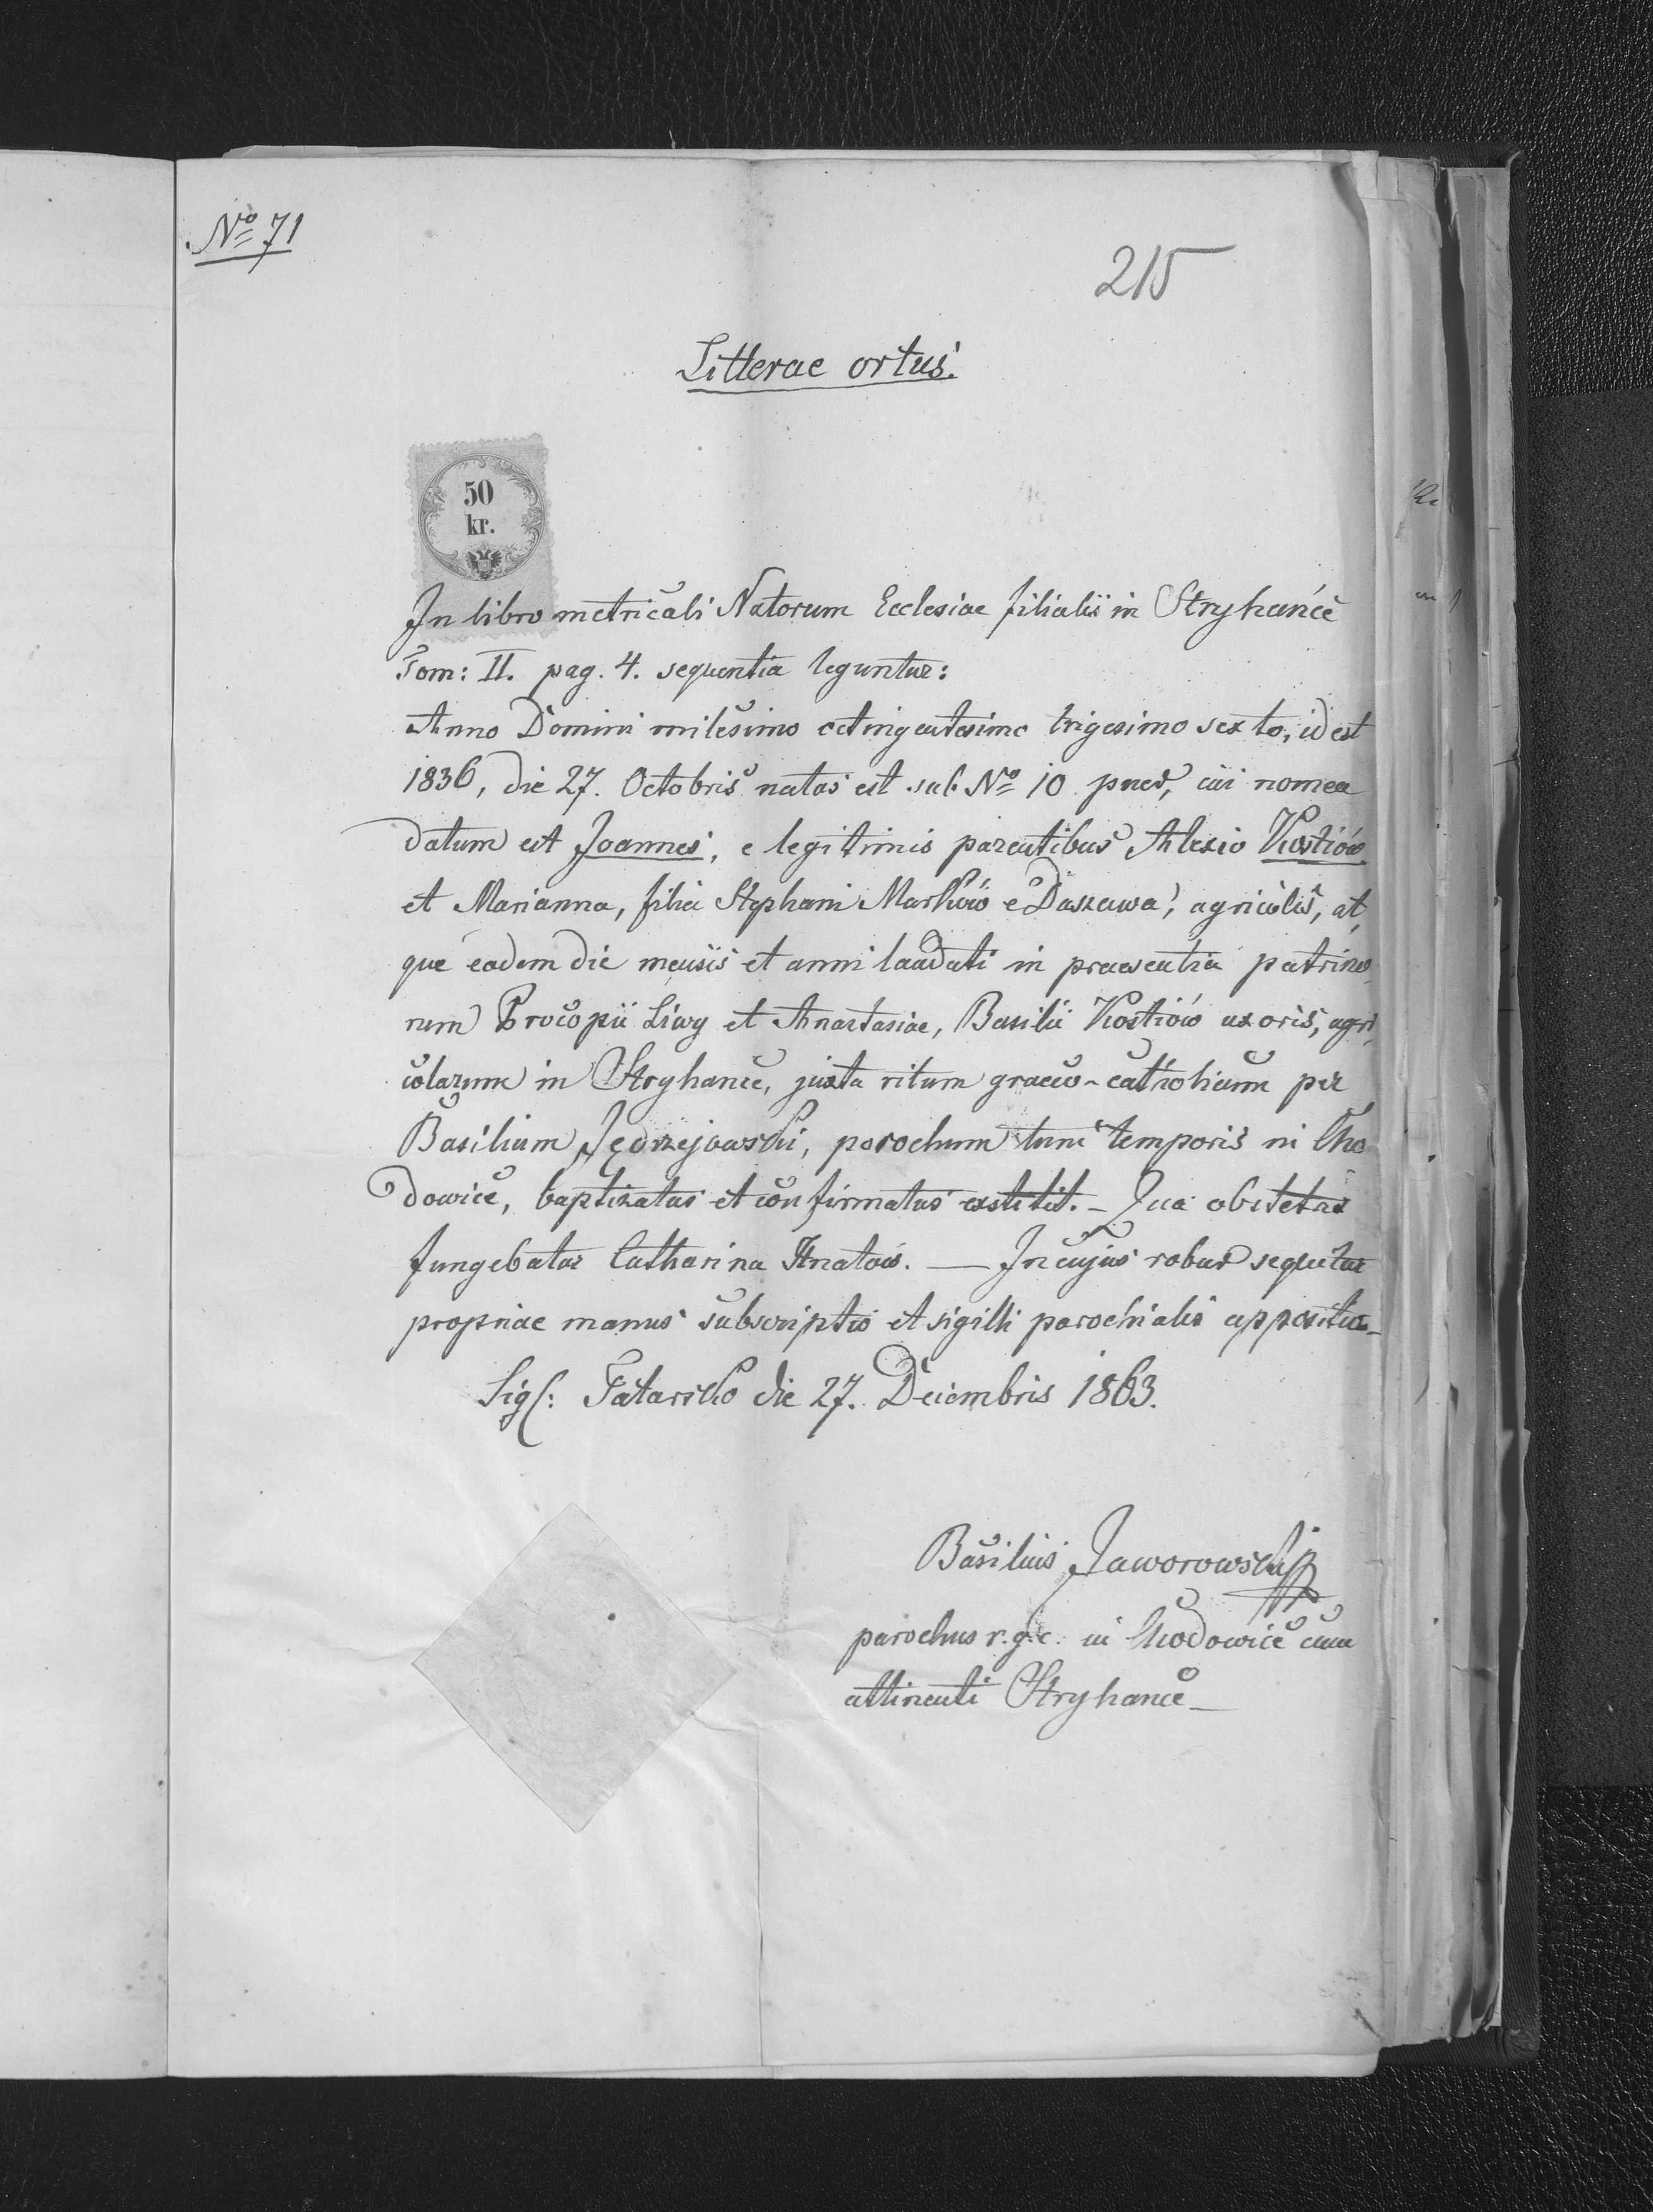 Nº 71
215
Litterae ortus.
50
kr.
In libro metricali Natorum Ecclesiae filialis in Stryhańce
Tom: II. pag. 4. sequentia leguntur:
Anno Domini milesimo octingentesimo trigesimo sexto, id est
1836, die 27. Octobris natus est sub Nº 10 puer, cui nomen
datum est Joannes, e legitimis parentibus Alexio Kostiów
et Marianna, filia Stephani Marków e Daszawa, agricolis, at,
que eadem die mensis et anni laudati in praesentia patrino,
rum Procopii Liwy et Anastasiae, Basilii Kostiów uxoris, agri,
colarum in Stryhance, juxta ritum graeco-catholicum per
Basilium Jędrzejowski, parochum tum temporis in Cho
dowice, baptizatus et confirmatus exstitit. - Qua obstetrix
fungebatur Catharina Hnatów. — In cujus robur sequitur
propriae manus subscriptio et sigilli parochialis appositio -
Sigl: Tatarsko die 27. Decembris 1863.
Basilius Jaworowski
parochus r. g. c. in Chodowice cum
attinenti Stryhance -